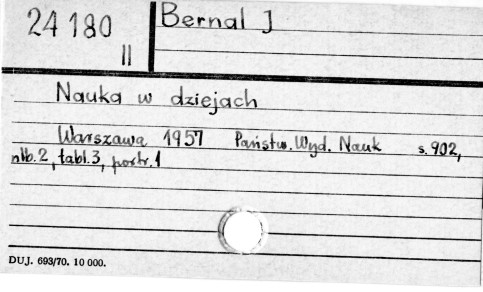 24 180
II
Bernal J
Nauka w dziejach
Warszawa 1957 Państw. Wyd. Nauk s. 902,
nlb. 2, tabl. 3, portr. 1
DUJ. 693/70. 10 000.